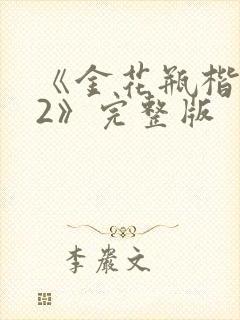 《金花瓶楷
2》完整版
李岩文